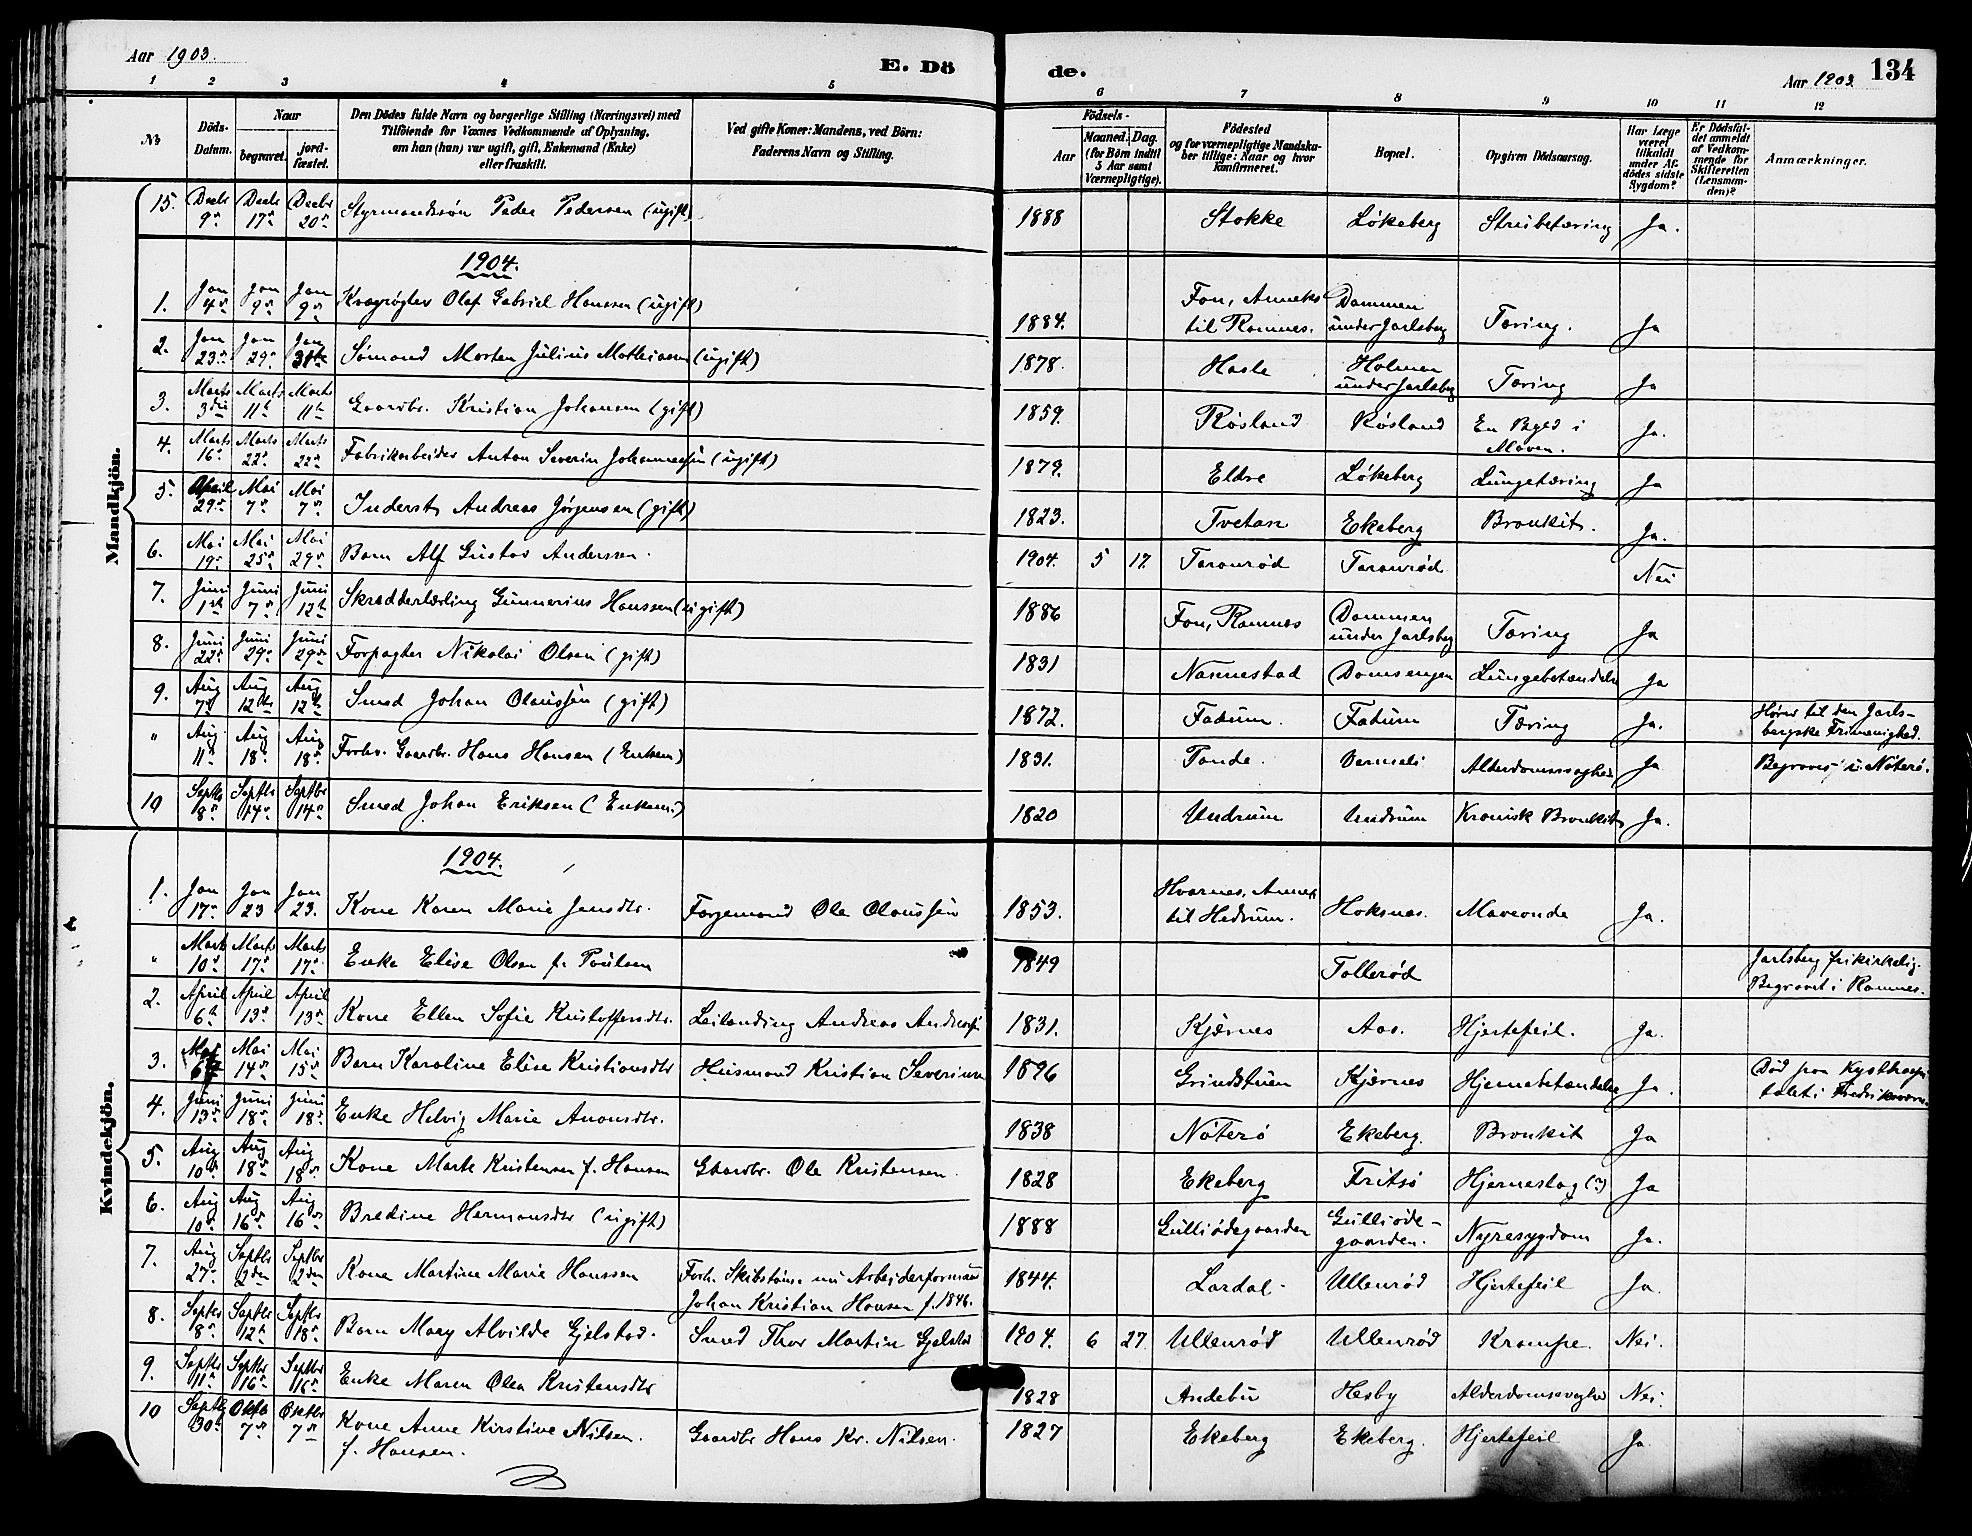 Aar 1903.
E. Dö
de.
Aar 1903
134
1 2 3 4 5 6 7 8 9 10 11 12
No
Döds-Datum.
Naar
begravet.
jord-fæstet.
Den Dödes fulde Navn og borgerlige Stilling (Næringsvei) med
Tilföiende for Voxnes Vedkommende af Oplysning,
om han (hun) var ugift, gift, Enkemand (Enke)
eller fraskilt.
Ved gifte Koner: Mandens, ved Börn:
Faderens Navn og Stilling.
Födsels-
Aar
Maaned. Dag.
(for Börn indtil
5 Aar samt
Værnepligtige).
Födested
og for værnepligtige Mandska-
ber tillige: Naar og hvor
konfirmeret.
Bopæl.
Opgiven Dödsaarsag.
Har Læge
været
tilkaldt
under Af-
dödes sidste
Sygdom?
Er Dödsfal-
det anmeldt
af Vedkom-
mende for
Skifteretten
(Lensman-
den)?
Anmærkninger.
Mandkjön.
15. Decbr 9de Decbr 17de Decbr 20de Styrmandssön Peder Pedersen (ugift) 1888 Stokke Løkeberg Strubetæring Ja.
1904.
1. Jan 4de Jan 9de Jan 9de Kvægrøgter Olaf Gabriel Hanssen (ugift) 1884. Fon, Anneks til Ramnes. Dammen under Jarlsberg Tæring. Ja
2. Jan 23de Jan 29de Jan 31te Sømand Morten Julius Mathiasen (ugift) 1878. Hasle Holmen under Jarlsberg Tæring Ja
3. Marts 3die Marts 11te Marts 11te Gaardbr. Kristian Johansen (gift) 1859. Røsland Røsland En Byld i Maven. Ja.
4. Marts 16de Marts 22de Marts 22de Fabrikarbeider Anton Severin Johannessen (ugift) 1879. Eldre Løkeberg Lungetæring Ja
5. April 29de Mai 7de Mai 7de Inderst Andreas Jørgensen (gift) 1823. Tvetan Ekeberg Bronkit. Ja.
6. Mai 19de Mai 25de Mai 29de Barn Alf Gustav Anderssen. 1904. 5 17. Taranrød Taranrød Nei
7. Juni 1ste Juni 7de Juni 12te Skrædderlærling Gunnerius Hanssen (ugift) 1886 Fon, Ramnes Dammen under Jarlsberg Tæring Ja
8. Juni 22de Juni 29de Juni 29de Forpagter Nikolai Olsen (gift) 1831 Nannestad Domsengen Lungebetændelse Ja
9. Aug 7de Aug 12te Aug 12te Smed Johan Olaussen (gift) 1872. Fadum. Fadum Tæring Ja. Hører til den Jarls-
bergske Frimenighed.
" Aug 11te Aug 18de Aug 18de Forhv. Gaardbr. Hans Hansen (Enkem) 1831. Tande. Alderdomssvaghed Ja Begravet i Nøterø.
10 Septbr 8de Septbr 14de Septbr 14de Smed Johan Eriksen (Enkem.) 1820 Undrum Undrum Kronisk Bronkit Ja.
Kvindekjön.
1904.
1. Jan 17de Jan 23 Jan 23. Kone Karen Marie Jensdtr. Fargemand Ole Olaussen 1853. Hvarnes, Annex til Hedrum. Hoksnes. Maveonde Ja.
" Mart 10de Marts 17de Marts 17de Enke Elise Olsen f. Poulsen 1849 Tollerød Jarlsberg frikirkelig.
Begravet i Ramnes.
2. April 6te April 13de April 13de Kone Ellen Sofie Kristoffersdtr. Leilænding Andreas Andersen 1831. Kjærnes Aas. Hjertefeil. Ja.
3. Mai Mai 14de Mai 15de Barn Karoline Elise Kristiansdtr Husmand Kristian Severinsen 1896 Grindstuen Kjærnes Hjernebetændelse Ja. Død paa Kysthospi-
talet i Fredriksværn.
4. Juni 13de Juni 18de Juni 18de Enke Helvig Marie Anonsdtr. 1838 Nøterø Ekeberg. Bronkit Ja
5. Aug 10de Aug 18de Aug 18de Kone Marte Kristensen f. Hansen Gaardbr. Ole Kristensen. 1828 Ekeberg Fritsø Hjerneslag (?) Ja
6. Aug 10de Aug 16de Aug 16de Bredine Hermansdtr (ugift) 1888 Gulliødegaarden Gulliøde-
gaarden. Nyresygdom Ja.
7. Aug 27de Septbr 2den Septbr 2den Kone Martine Marie Hanssen Forh. Skibstømm. nu Arbeiderformand
Johan Kristian Hansen f. 1846. 1844. Lardal. Ullenrød Hjertefeil Ja.
8. Septbr 8de Septbr 12te Septbr 18de Barn Mary Alvilde Gjelstad. Smed Thor Martin Gjelstad 1904. 6 27. Ullenrød Ullenrød Krampe. Nei.
9. Septbr 11te Septbr 16de Septbr 16de Enke Maren Olea Kristensdtr 1828 Andebu Hesby Alderdomssvaghed Nei.
10 Septbr 30te Oktb 7de Oktbr 7de Kone Anne Kirstine Nilsen.
f. Hansen. Gaardbr Hans Kr. Nilsen. 1827 Ekeberg Ekeberg. Hjertefeil Ja.